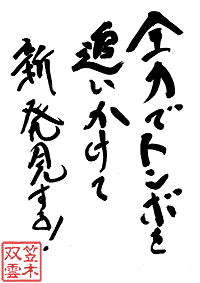 全力でトンボを
追いかけて
新発見する!
笠木
双雲